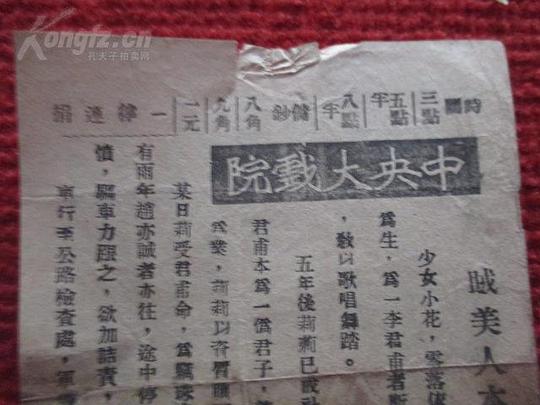 Kongfz.cn
孔夫子拍卖网
時間
三點
五點半
八點半
儲鈔
八角
九角
一元
一律連捐
中央大戲院
美人
少女小花，零落
爲生，爲一李君甫者
，敎以歌唱舞蹈。
五年後莉莉已成社
君甫本爲一僞君子，
爲業，莉莉以
某日莉受君甫命，爲
有雨年趙亦誠者亦往，途中停
憤，驅車力跟之，欲加詰責，
車行至公路檢查處，軍